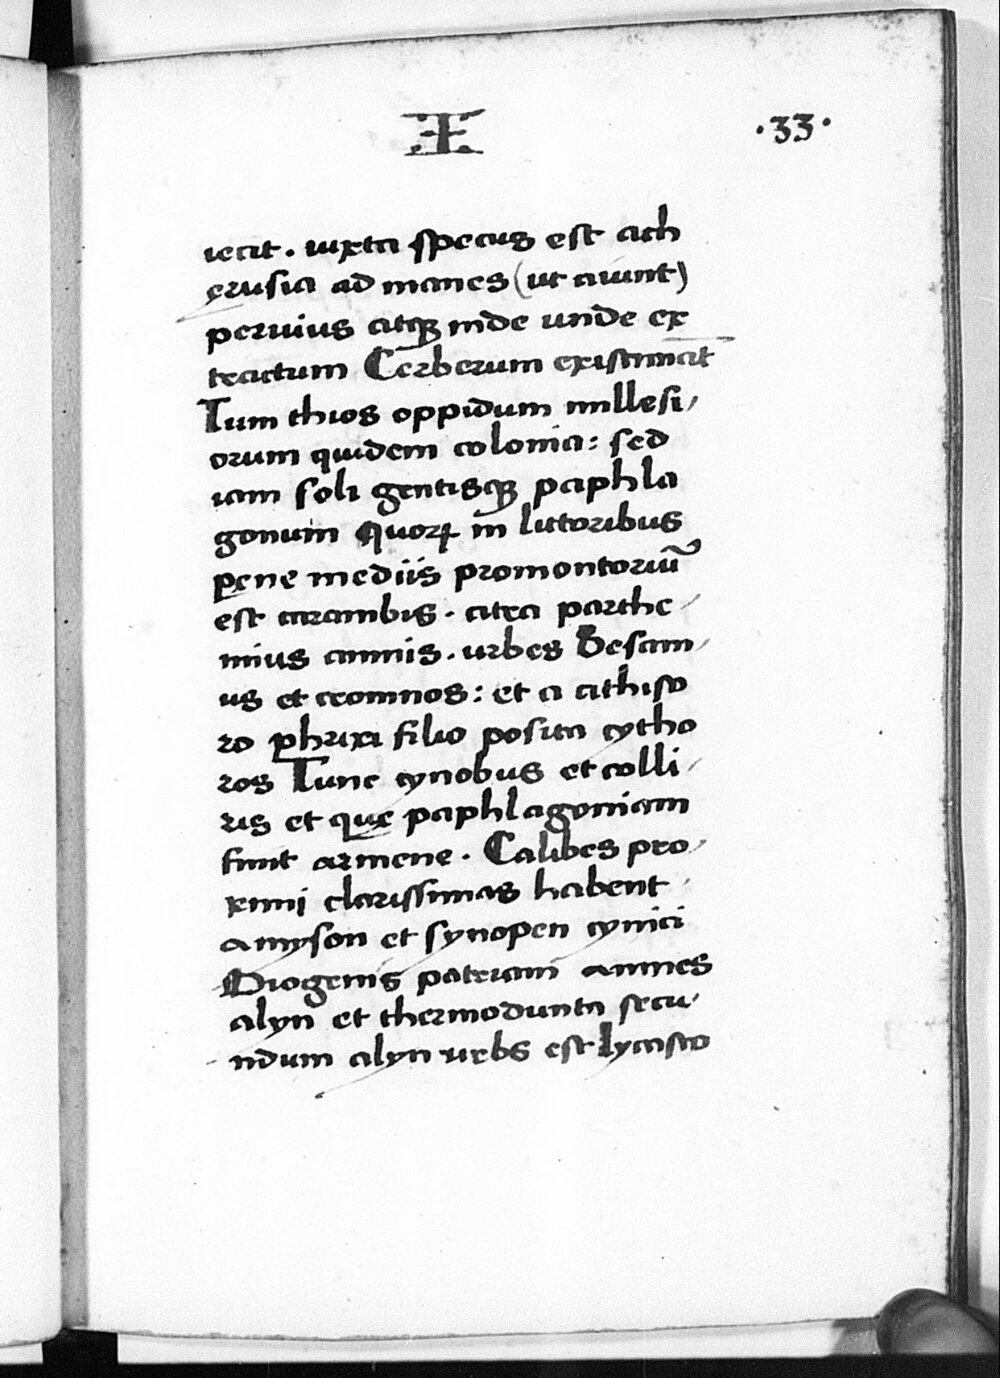 ·33·
iecit . iuxta specus est ach
erusia ad manes (ut aiunt)
pervius atq3 inde unde ex
tractum Cerberum existimāt
Tum thios oppidum millesi/
orum quidem colonia: sed
iam soli gentisq3 paphla
gonum Quoꝝ in littoribus
pene mediis promontoriū
est carambis . citra parthe
nius amnis . urbes Sesam/
us et cromnos: et a cithiso
ro phrixi filio posita cytho
ros Tunc cynobus et colli/
ris et que paphlagoniam
finit armene . Calibes pro/
ximi clarissimas habent
amyson et synopen cynici
Diogenis patriam amnes
alyn et thermodunta secu/
ndum alyn urbs est lycasto